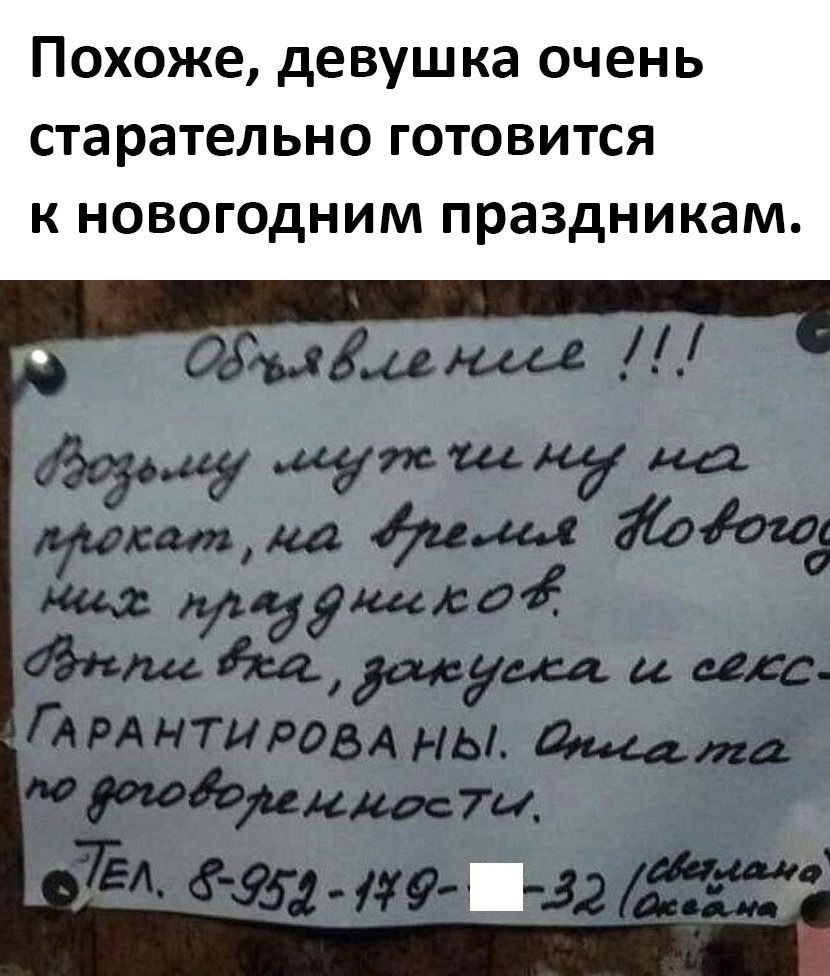 Похоже, девушка очень
старательно готовится
к новогодним праздникам.
Объявление !!!
Возьму мужчину на
прокат, на время Новогод
них праздников.
Выпивка, закуска и секс-
ГАРАНТИРОВАНЫ. Оплата
по договоренности.
ТЕЛ. 8-952-179- -32 (Светлана
Оксана